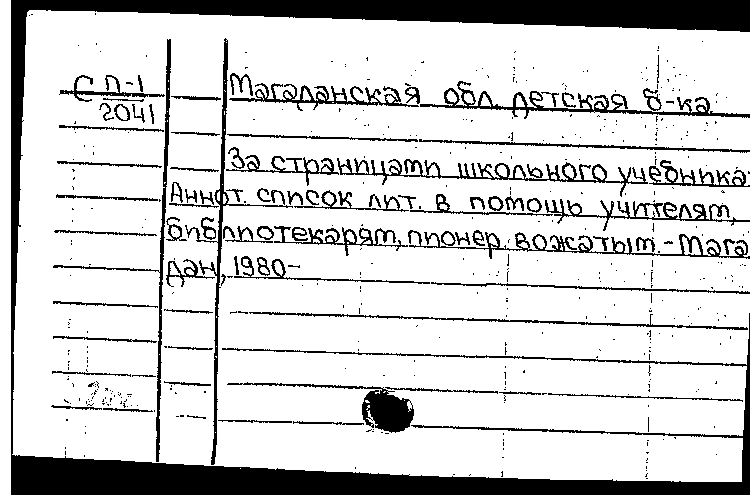 С П-1
2041
Магаданская обл. детская б-ка
За страницами школьного учебника:
Аннот. список лит. в помощь учителям,
библиотекарям, пионер. вожатым.-Мага
дан, 1980-